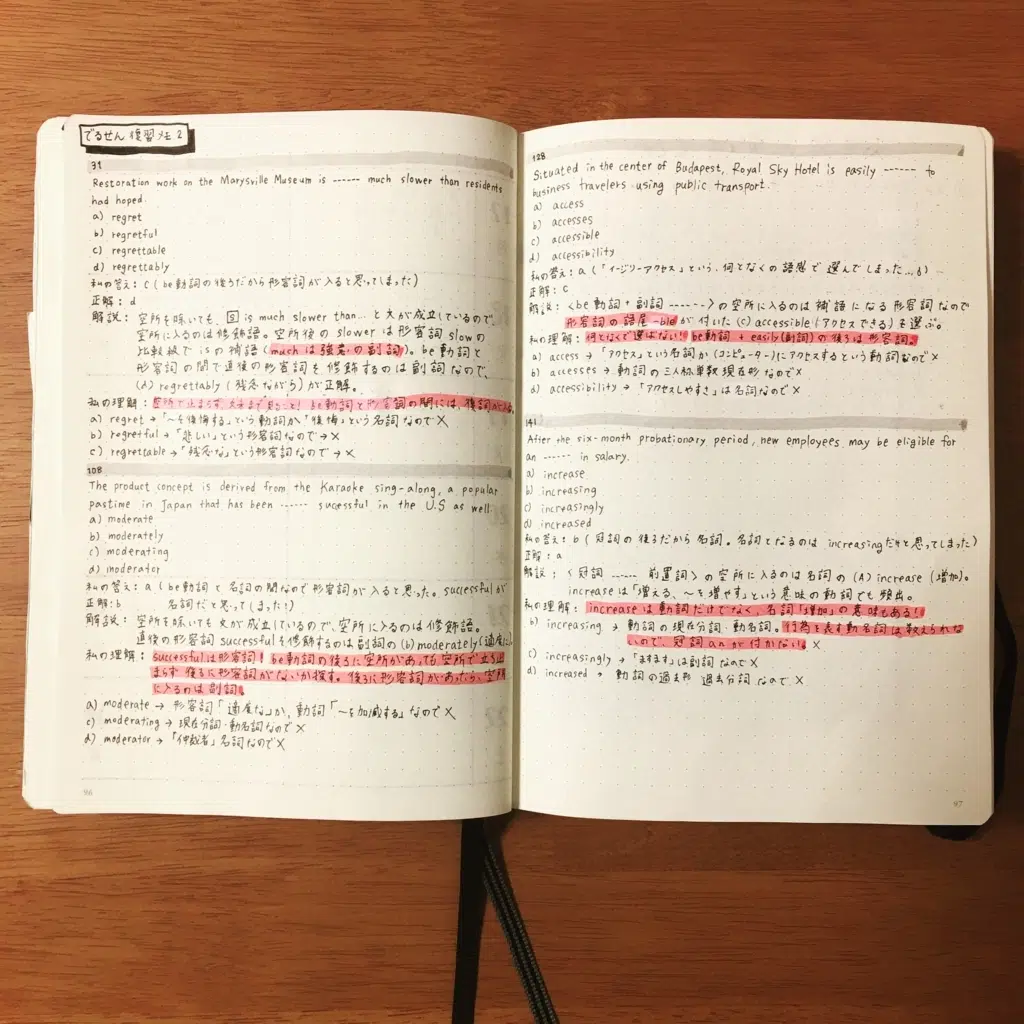 でるせん 復習メモ 2
31
Restoration work on the Marysville Museum is ------ much slower than residents
had hoped.
a) regret
b) regretful
c) regrettable
d) regrettably
私の答え: c (be動詞の後ろだから形容詞が入ると思ってしまった)
正解: d
解説: 空所を除いても、S is much slower than... と文が成立しているので、
空所に入るのは修飾語。空所後の slower は形容詞 slow の
比較級で is の補語 (much は強意の副詞)。be動詞と
形容詞の間で直後の形容詞を修飾するのは副詞なので、
(d) regrettably (残念ながら) が正解。
私の理解: 空所で止まらず、文末まで見ること! be動詞と形容詞の間には、副詞が入る。
a) regret → 「〜を後悔する」という動詞か「後悔」という名詞なので×
b) regretful → 「悲しい」という形容詞なので→×
c) regrettable → 「残念な」という形容詞なので→×
108
The product concept is derived from the Karaoke sing-along, a popular
pastime in Japan that has been ------ sucessful in the U.S as well.
a) moderate
b) moderately
c) moderating
d) moderator
私の答え: a (be動詞と名詞の間なので形容詞が入ると思った。successfulが
正解: b 名詞だと思ってしまった!)
解説: 空所を除いても文が成立しているので、空所に入るのは修飾語。
直後の形容詞 successful を修飾するのは副詞の (b) moderately (適度に)。
私の理解: successfulは形容詞! be動詞の後ろに空所があっても空所で立ち止
まらず 後ろに形容詞がないか探す。後ろに形容詞があったら、空所
に入るのは副詞。
a) moderate → 形容詞「適度な」か、動詞「〜を加減する」なので×
c) moderating → 現在分詞・動名詞なので×
d) moderator → 「仲裁者」名詞なので×
96
128
Situated in the center of Budapest, Royal Sky Hotel is easily ------ to
business travelers using public transport.
a) access
b) accesses
c) accessible
d) accessibility
私の答え: a (「イージリーアクセス」という、何となくの語感で選んでしまった...)
正解: c
解説: <be動詞 + 副詞 ------> の空所に入るのは補語になる形容詞なので
形容詞の語尾 -ble が付いた (c) accessible (アクセスできる) を選ぶ。
私の理解: 何となくで選ばない!! be動詞 + easily(副詞)の後ろは形容詞。
a) access → 「アクセス」という名詞か (コンピューター)にアクセスするという動詞なので×
b) accesses → 動詞の三人称単数現在形なので×
d) accessibility → 「アクセスしやすさ」は名詞なので×
141
After the six-month probationary period, new employees may be eligible for
an ------ in salary.
a) increase
b) increasing
c) increasingly
d) increased
私の答え: b (冠詞の後ろだから名詞。名詞となるのは increasingだけと思ってしまった)
正解: a
解説: <冠詞 ------ 前置詞> の空所に入るのは名詞の (A) increase (増加)。
increaseは「増える、〜を増やす」という意味の動詞でも頻出。
私の理解: increaseは動詞だけでなく、名詞「増加」の意味もある!
b) increasing → 動詞の現在分詞・動名詞。行為を表す動名詞は数えられな
いので、冠詞 an が付かない。×
c) increasingly → 「ますます」は副詞なので×
d) increased → 動詞の過去形 過去分詞なので×
97